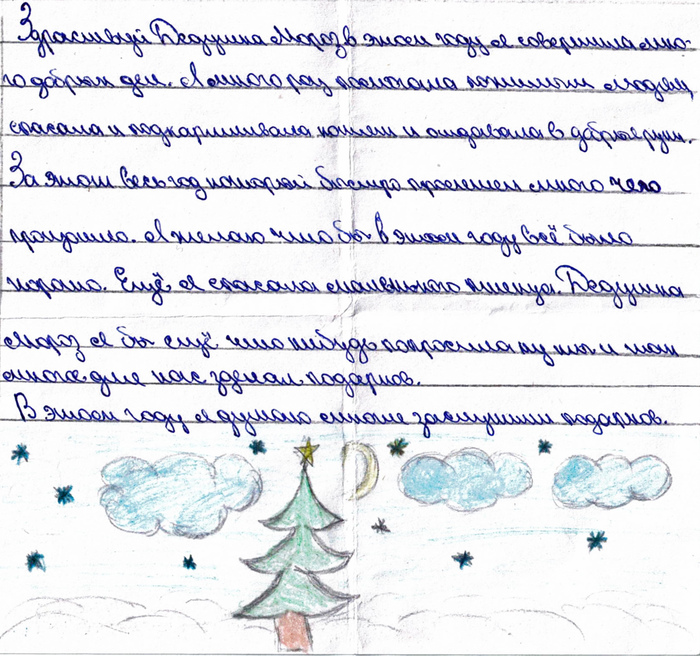 Здраствуй Дедушка Мороз в этом году я совершила мно-
го добрых дел. Я много раз помогала пожилым людям,
спасала и подкармливала кошек и отдавала в добрые руки.
За этот весь год который быстро пролетел много чего
произошло. Я желаю что бы в этом году всё было
хорошо. Ещё я спасала маленького щенка. Дедушка
Мороз я бы ещё что нибудь попросила ну ты и так
много для нас зделал подарков.
В этом году я думаю многие заслужили подарков.